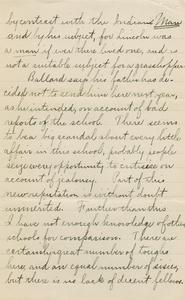 by contrast with the Indians, Man
and by his subject, for Lincoln was
a man if ever there lived one, and is
not a suitable subject for a grasshopper.
Ballard says his father has de-
cided not to send him here next year,
as he intended, on account of bad
reports of the school. There seems
to be a big scandal about every little
affair in this school, probably people
seize every opportunity to criticise on
account of jealousy. Part of this
new reputation is without doubt
unmerited. Further than this
I have not enough knowledge of other
schools for comparison. There are
certainly great number of toughs
here, and an equal number of sissies,
but there is no lack of decent fellows.